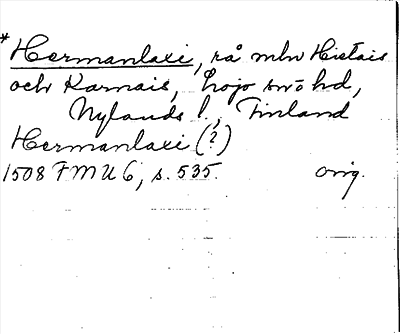 *Hermanlaxi, rå mlw Hietais
och Karnais, Lojo sn o hd,
Nylands l., Finland
Hermanlaxi (?)
1508 FMU 6, s. 535. orig.